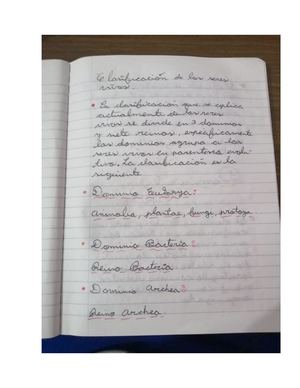 Clasificación de los seres
vivos.
• La clasificación que se aplica
actualmente de los seres
vivos se divide en 3 dominios
y siete reinos, específicamente
los dominios agrupa a los
seres vivos su parentesco evolu-
tivo. La clasificación es la
siguiente
• Dominio Eukarya:
Animalia, plantae, fungi, protozoa
• Dominio Bacteria:
Reino Bacteria
• Dominio Archea:
Reino Archea